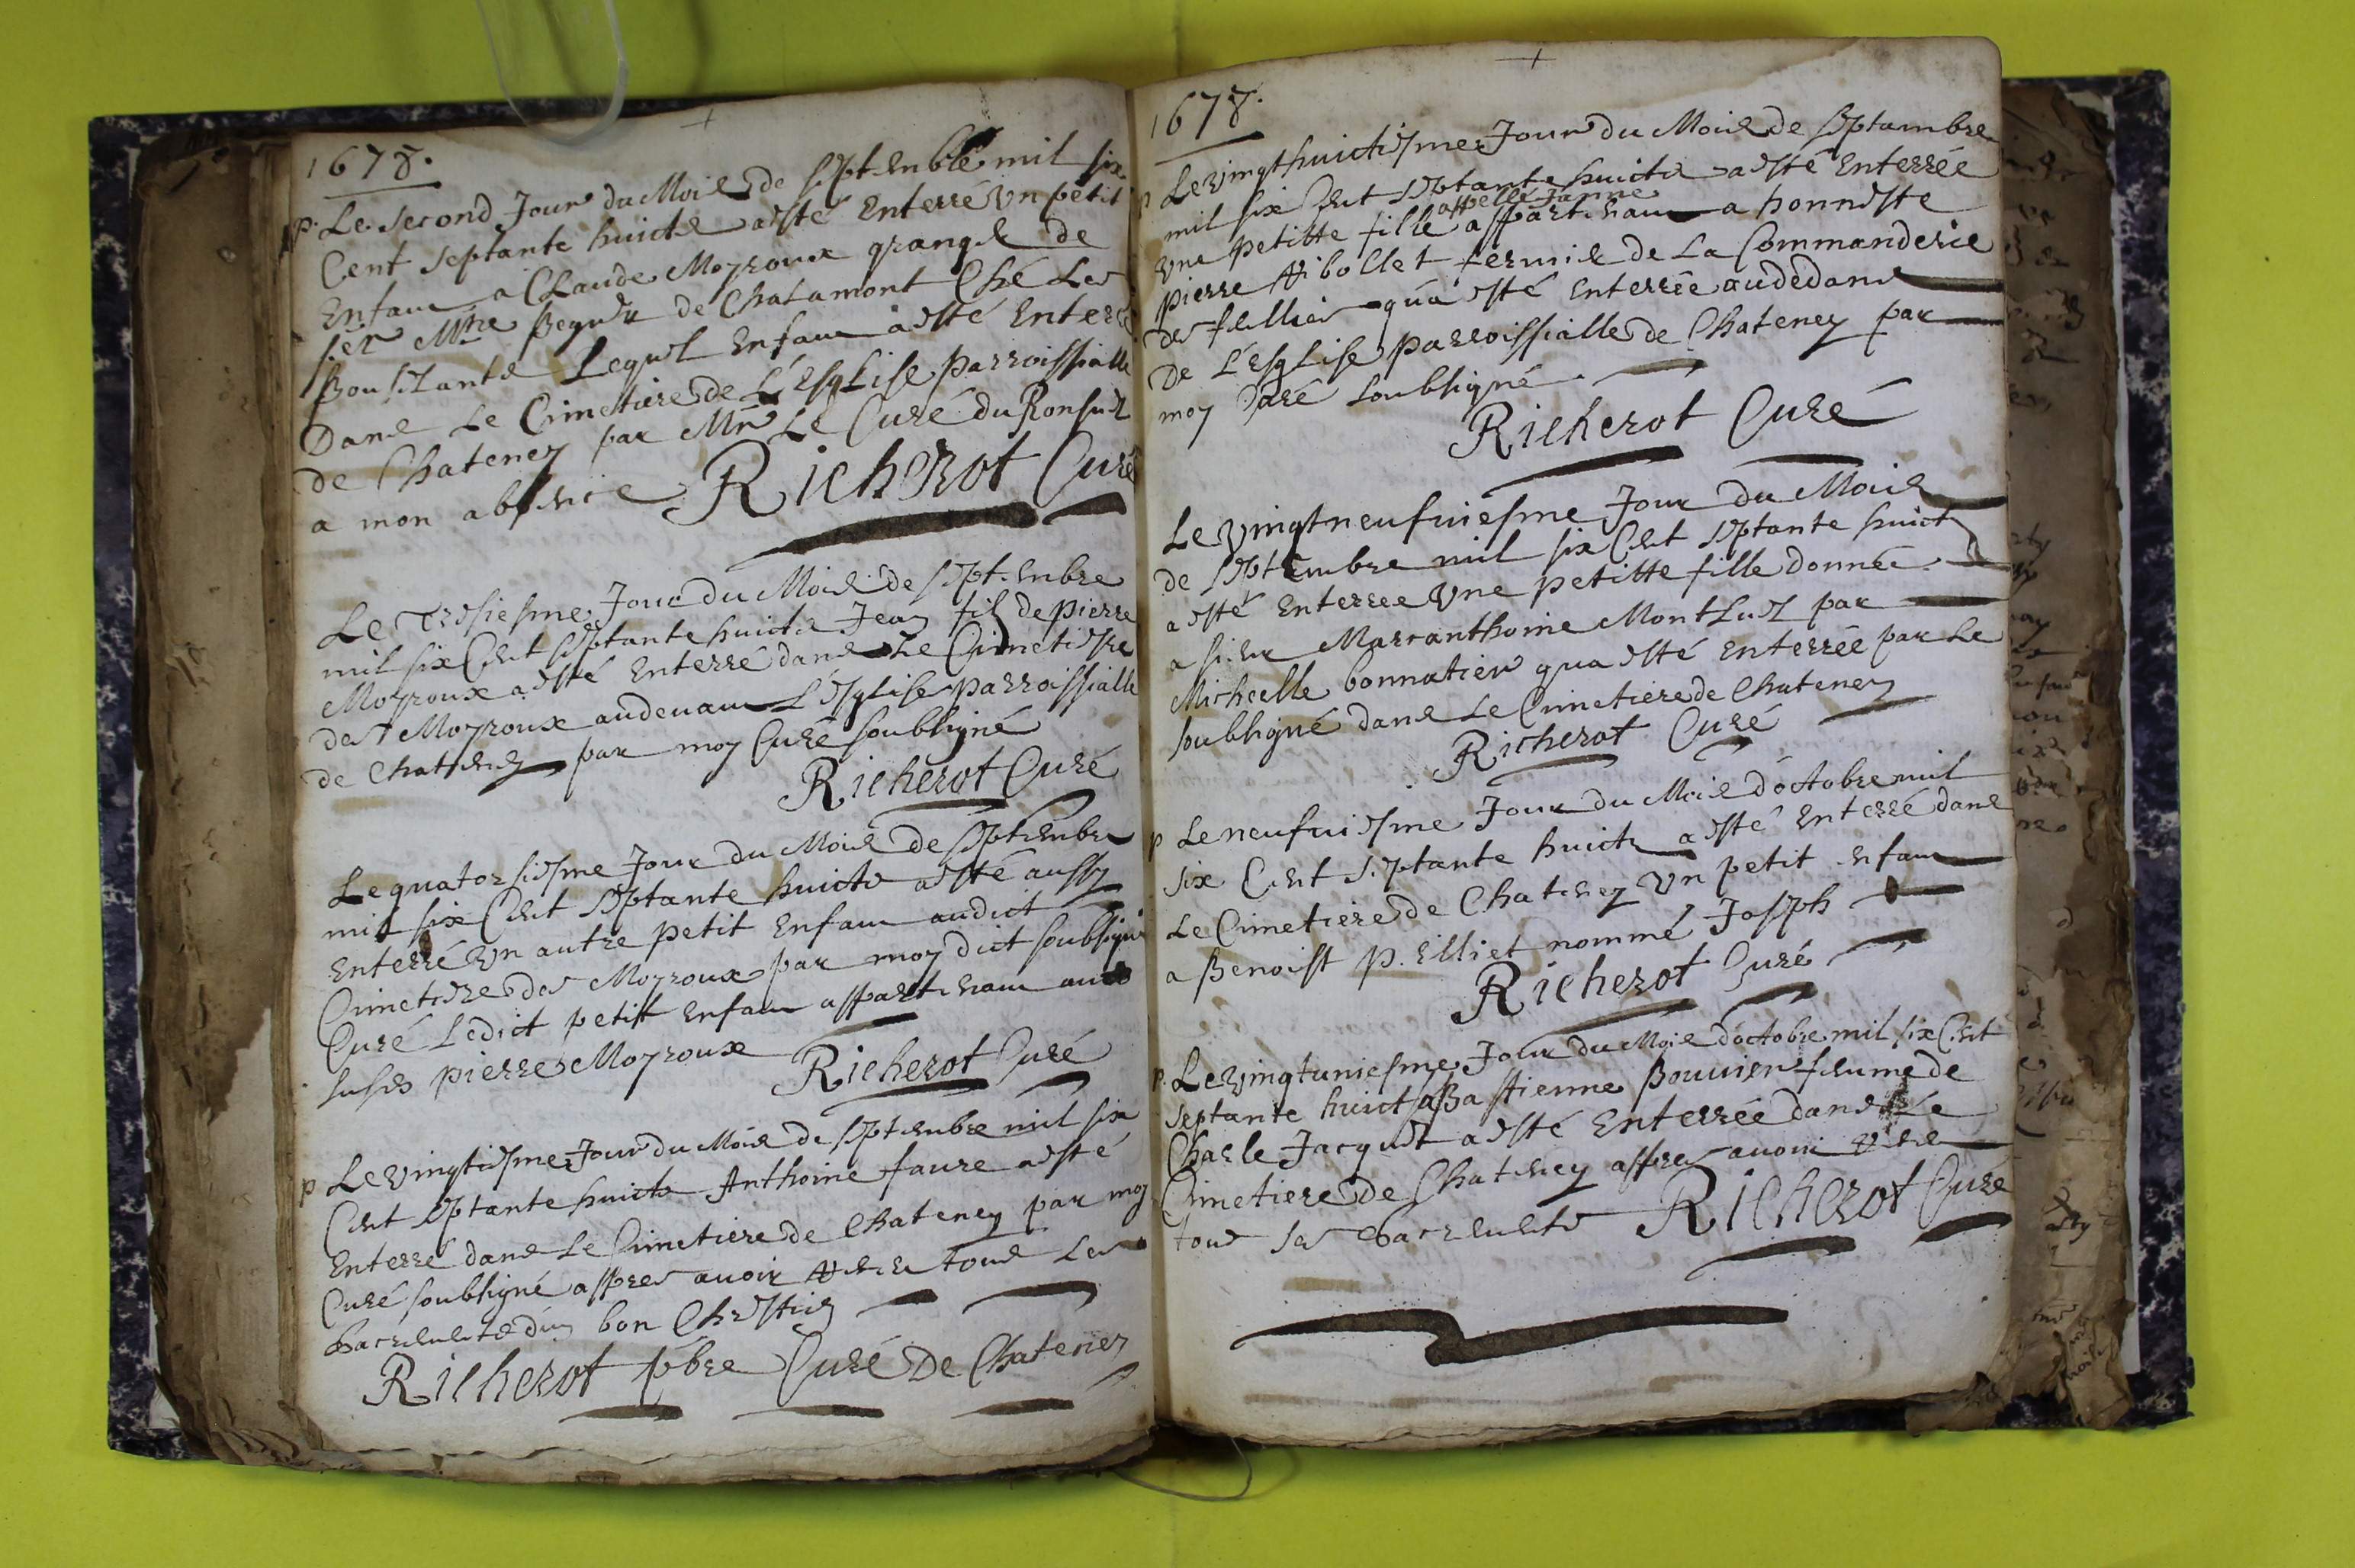 1678.
p. Le second Jour du Mois de septenbre mil six
Cent septante huicts a esté Enterré Vn petit
Enfant a Claude Moyroux grangé de
sier Mtre de Chatamont Ché Les
Lequel Enfant a esté Enterré
Dans Le Cimetiere de L'Esglise parroissialle
de Chateney par Mr Le Curé du
a mon absence Richerot Curé
Le Tresiesme Jour du Mois de septenbre
mil six Cent septante huicts Jean fils de pierre
Moyroux a esté Enterré dans Le Cimetiesre
des Moyroux audeuant L'esglise parroissialle
de Chateney par moy Curé soubsigné
Richerot Curé
Le quatorsiesme Jour du Mois de septenbre
mil six Cent septante huicts a esté aussy
Enterré Vn autre petit Enfant audict
Cimetiere des Moyroux par moy dict soubsigné
Curé Ledict petit Enfant appartenant au
susds pierre Moyroux Richerot Curé
p Le vingtiesme Jour du Mois de septenbre mil six
Cent septante huicts Anthoine faure a esté
Enterré dans Le Cimetiere de Chateney par moy
Curé soubsigné appres auoir tous Les
Sacrements d'un bon Chrestien
Richerot pbre Curé De Chateney
1678.
p Le vingthuictiesme Jour du Mois de septambre
mil six Cent septante huicts a esté Enterrée
appellé Janne
Vne petitte fille appartenant a honneste
pierre fermié de La Commanderie
des feullies qu'a esté Enterrée audedans
De L'Esglise parroissialle de Chateney par
moy Curé soubsigné
Richerot Curé
Le vingtneufuiesme Jour du Mois
de septembre mil six Cent septante huict
a esté Enterrée Vne petitte fille donnée
a sieur Marcanthoine Montluel par
Micheelle bonnatier qu'a esté Enterrée par Le
soubsigné dans Le Cimetiere de Chateney
Richerot Curé
p Le neufuiesme Jour du Mois d'octobre mil
six Cent septante huicts a esté Enterré dans
Le Cimetiere de Chateney Vn petit enfant
a Benoist p. Elliet nommé Joseph
Richerot Curé
p. Le vingtuniesme Jour du Mois d'octobre mil six Cent
septante huict Bastienne Bouuier femme de
Charle Jacquet a esté Enterrée dans Le
Cimetiere de Chateney appres auoir
tous Les Sacrements Richerot Curé